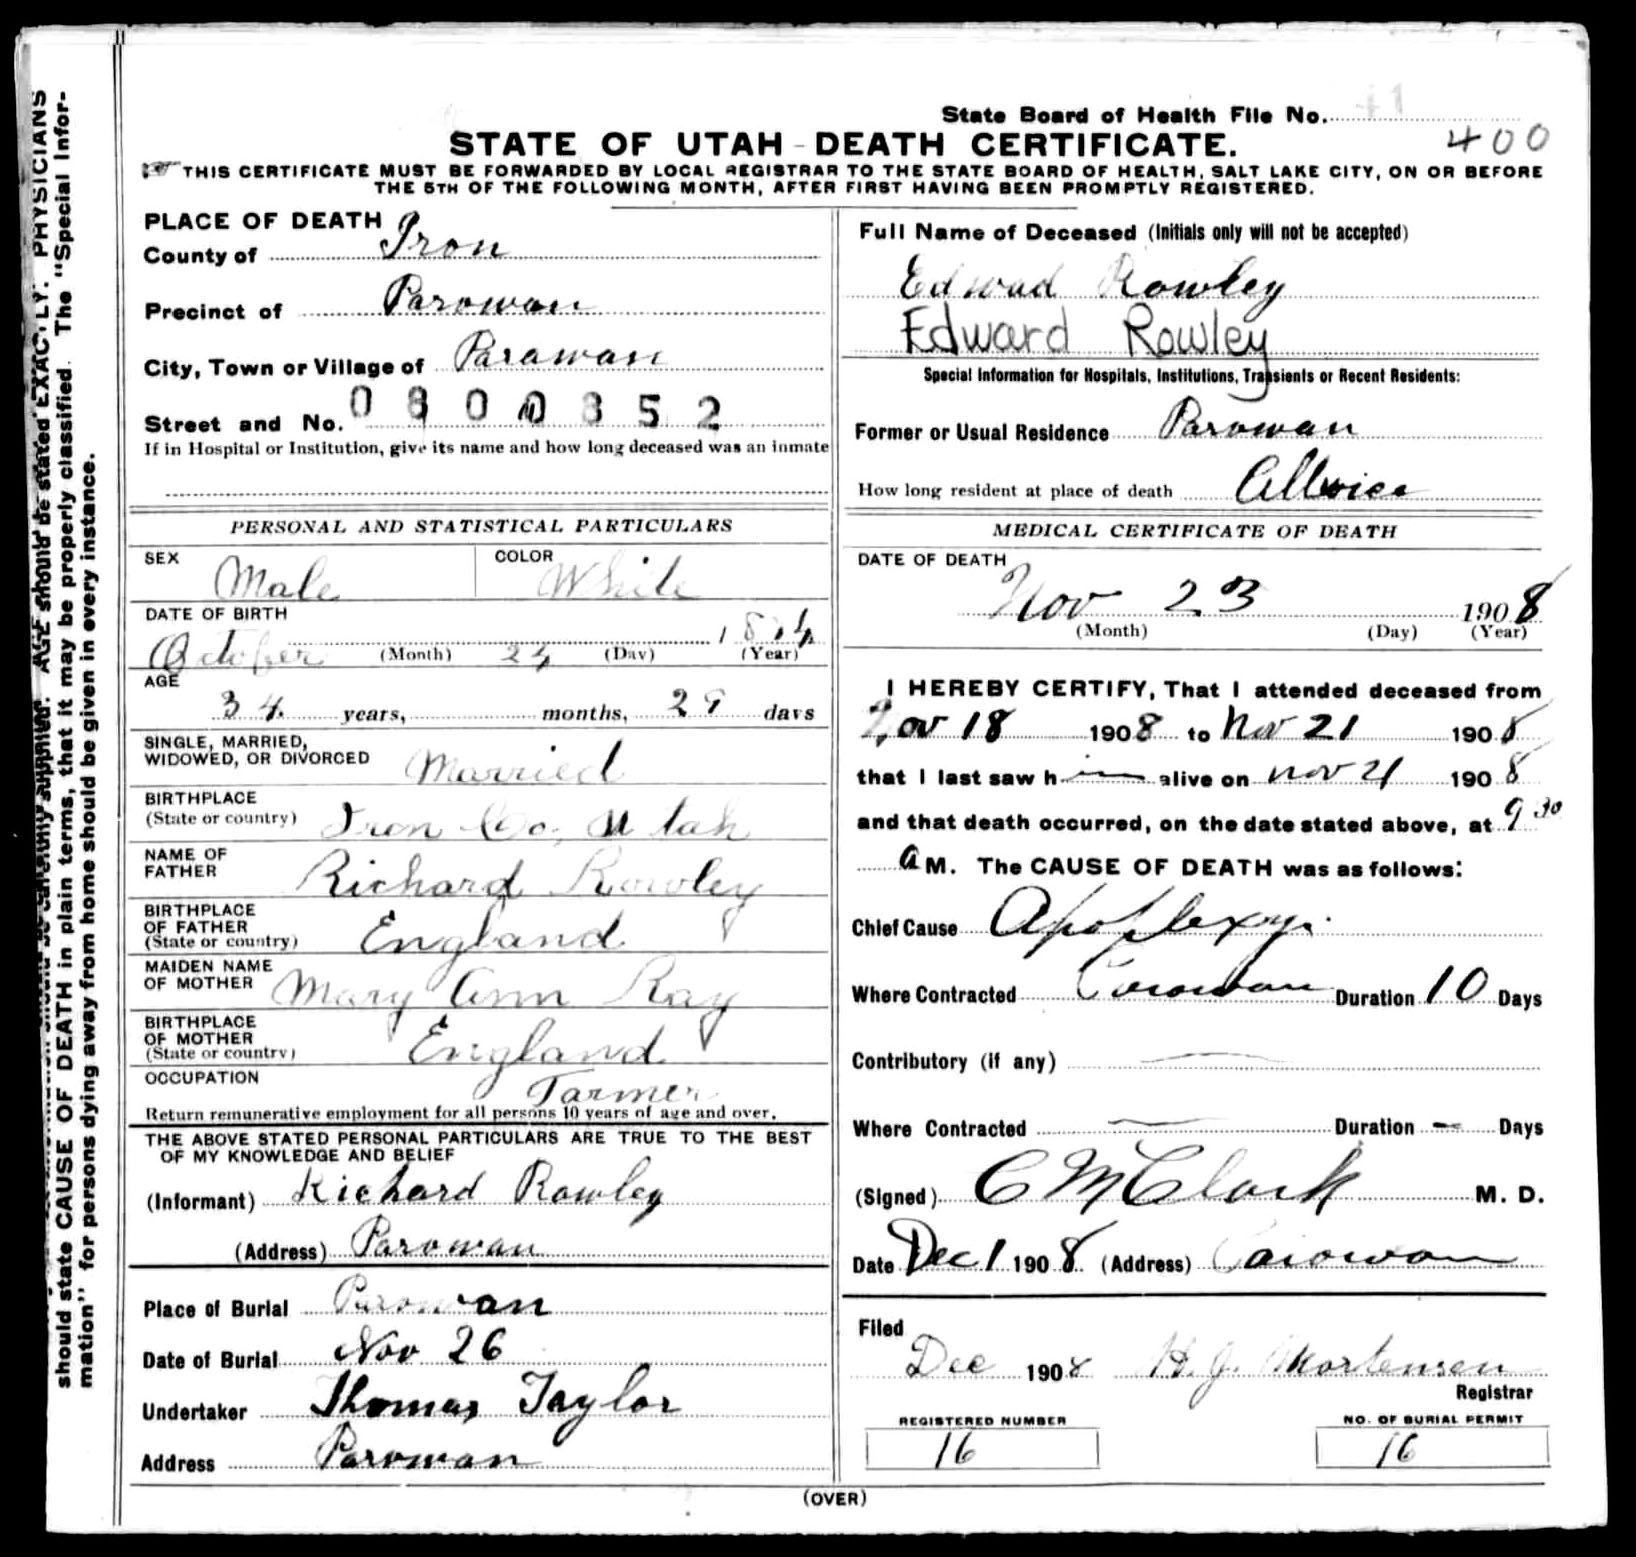 should state CAUSE OF DEATH in plain terms, that it may be properly classified. The "Special Infor-
mation" for persons dying away from home should be given in every instance.
AGE should be stated EXACTLY. PHYSICIANS
State Board of Health File No. 41
STATE OF UTAH - DEATH CERTIFICATE.
400
THIS CERTIFICATE MUST BE FORWARDED BY LOCAL REGISTRAR TO THE STATE BOARD OF HEALTH, SALT LAKE CITY, ON OR BEFORE
THE 5TH OF THE FOLLOWING MONTH, AFTER FIRST HAVING BEEN PROMPTLY REGISTERED.
PLACE OF DEATH
County of Iron
Precinct of Parowan
City, Town or Village of Parawan
Street and No.
If in Hospital or Institution, give its name and how long deceased was an inmate
PERSONAL AND STATISTICAL PARTICULARS
SEX Male COLOR White
DATE OF BIRTH
October (Month) 24 (Day) 1874 (Year)
AGE
34 years, months, 29 days
SINGLE, MARRIED,
WIDOWED, OR DIVORCED Married
BIRTHPLACE
(State or country) Iron Co, Utah
NAME OF
FATHER Richard Rowley
BIRTHPLACE
OF FATHER
(State or country) England
MAIDEN NAME
OF MOTHER Mary Ann Ray
BIRTHPLACE
OF MOTHER
(State or country) England
OCCUPATION Farmer
Return remunerative employment for all persons 10 years of age and over.
THE ABOVE STATED PERSONAL PARTICULARS ARE TRUE TO THE BEST
OF MY KNOWLEDGE AND BELIEF
(Informant) Richard Rowley
(Address) Parowan
Place of Burial Parowan
Date of Burial Nov 26
Undertaker Thomas Taylor
Address Parowan
Full Name of Deceased (Initials only will not be accepted)
Edward Rowley
Edward Rowley
Special Information for Hospitals, Institutions, Transients or Recent Residents:
Former or Usual Residence Parowan
How long resident at place of death
MEDICAL CERTIFICATE OF DEATH
DATE OF DEATH
Nov 23 1908
(Month) (Day) (Year)
I HEREBY CERTIFY, That I attended deceased from
Nov 18 1908 to Nov 21 1908
that I last saw h im alive on Nov 21 1908
and that death occurred, on the date stated above, at 9 30
a M. The CAUSE OF DEATH was as follows:
Chief Cause Apoplexy.
Where Contracted Parowan Duration 10 Days
Contributory (if any)
Where Contracted Duration — Days
(Signed) C M Clark M. D.
Date Dec 1 1908 (Address) Parowan
Filed
Dec 1908 H. J. Mortensen
Registrar
REGISTERED NUMBER
16
NO. OF BURIAL PERMIT
16
(OVER)